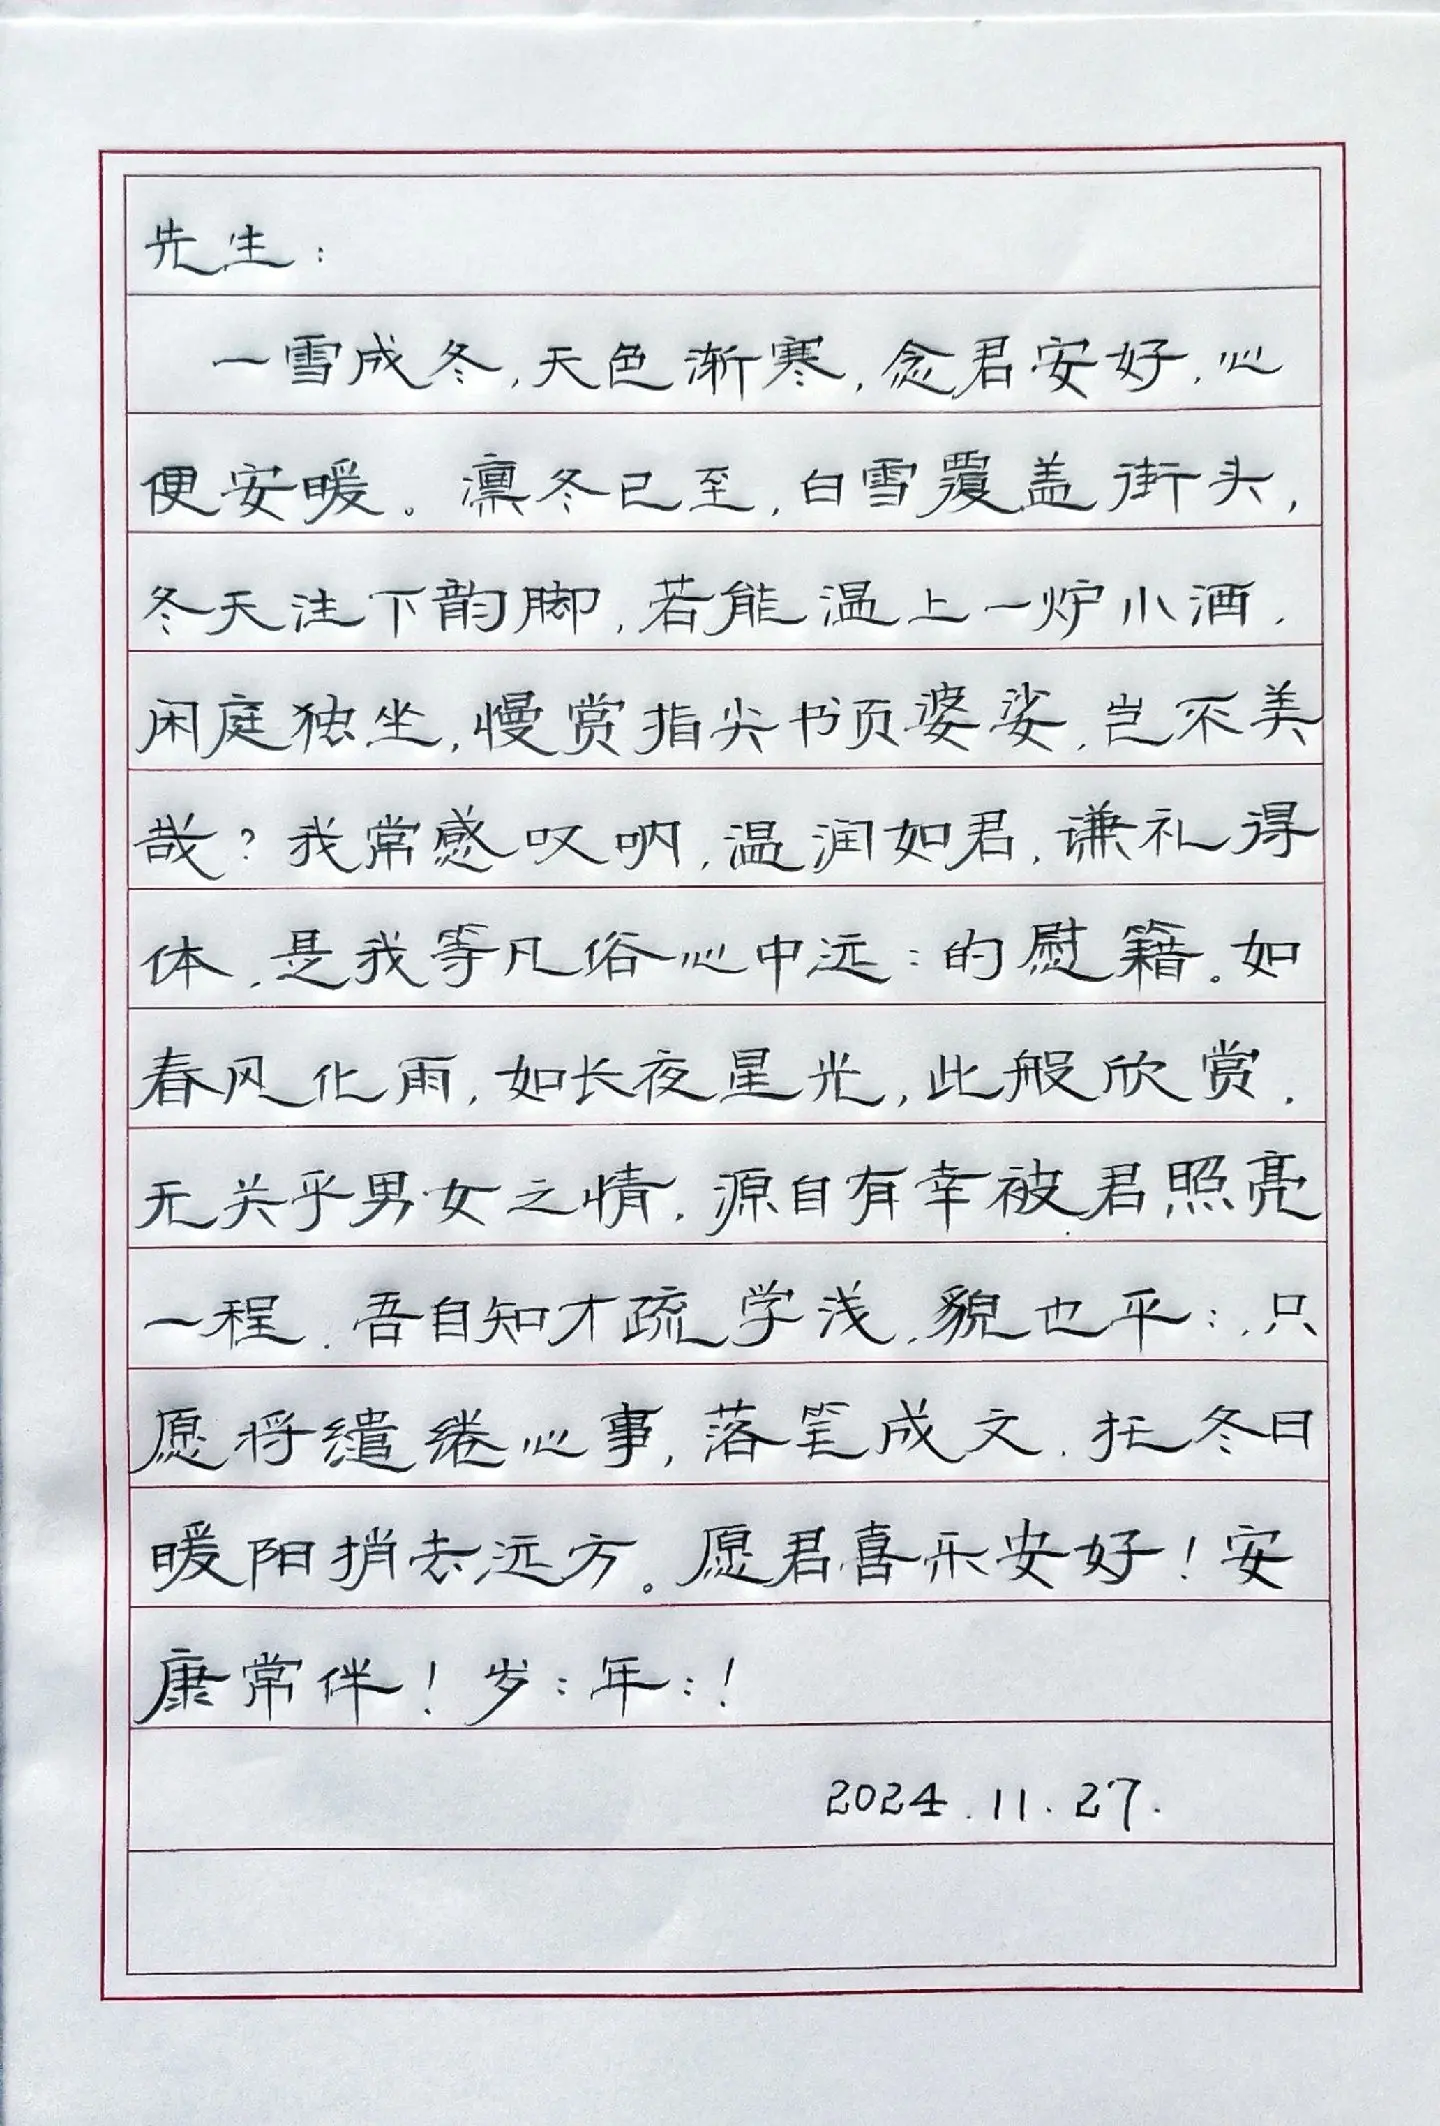 先生：
一雪成冬，天色渐寒，念君安好，心
便安暖。凛冬已至，白雪覆盖街头，
冬天注下韵脚，若能温上一炉小酒，
闲庭独坐，慢赏指尖书页婆娑，岂不美
哉？我常感叹呐，温润如君，谦礼得
体，是我等凡俗心中远：的慰籍。如
春风化雨，如长夜星光，此般欣赏，
无关乎男女之情，源自有幸被君照亮
一程．吾自知才疏学浅，貌也平：，只
愿将缱绻心事，落笔成文．托冬日
暖阳捎去远方。愿君喜乐安好！安
康常伴！岁：年：！
2024.11.27.